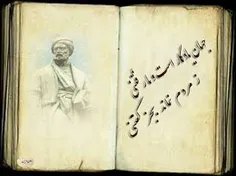 جهان یادگار است و ما رفتنی
ز مردم نماند بجز گفتنی